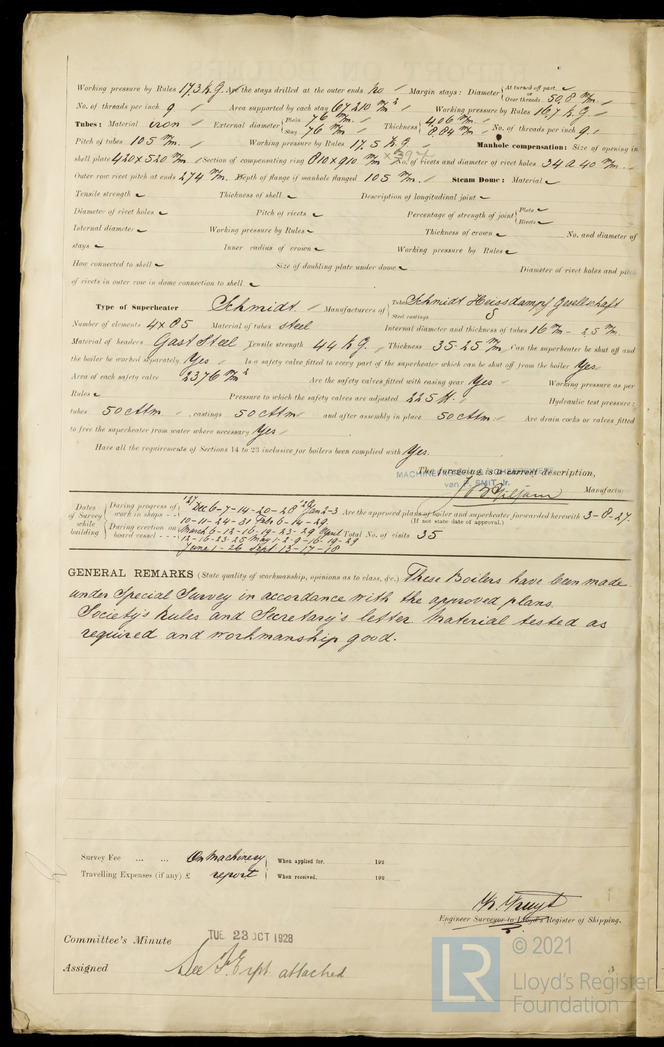 Working pressure by Rules 17.3 k.g. Are the stays drilled at the outer ends No Margin stays: Diameter At turned off part. or Over threads 50,8 m/m.
No. of threads per inch 9 Area supported by each stay 67210 m/m² Working pressure by Rules 16,7 k.g.
Tubes: Material iron External diameter Plain 76 m/m. Stay 76 m/m Thickness 4,06 m/m 8.84 m/m No. of threads per inch 9.
Pitch of tubes 105 m/m. Working pressure by Rules 17.5 k.g. Manhole compensation: Size of opening in
shell plate 420 x 520 m/m Section of compensating ring 810 x 910 m/m No. of rivets and diameter of rivet holes 34 a 40 m/m.
Outer row rivet pitch at ends 274 m/m. Depth of flange if manhole flanged 105 m/m. Steam Dome: Material
Tensile strength Thickness of shell Description of longitudinal joint
Diameter of rivet holes Pitch of rivets Percentage of strength of joint Plate Rivets
Internal diameter Working pressure by Rules Thickness of crown No. and diameter of
stays Inner radius of crown Working pressure by Rules
How connected to shell Size of doubling plate under dome Diameter of rivet holes and pitch
of rivets in outer row in dome connection to shell
Type of Superheater Schmidt. Manufacturers of Tubes Schmidt Heissdampf Gesellschaft Steel castings
Number of elements 4 x 85 Material of tubes steel Internal diameter and thickness of tubes 16 m/m - 2.5 m/m.
Material of headers Cast Steel Tensile strength 44 k.g. Thickness 35-25 m/m Can the superheater be shut off and
the boiler be worked separately Yes Is a safety valve fitted to every part of the superheater which can be shut off from the boiler Yes
Area of each safety valve 2376 m/m² Are the safety valves fitted with easing gear Yes Working pressure as per
Rules Pressure to which the safety valves are adjusted 225 lb. Hydraulic test pressure:
tubes 50 Atm castings 50 Atm and after assembly in place 50 Atm. Are drain cocks or valves fitted
to free the superheater from water where necessary Yes
Have all the requirements of Sections 14 to 23 inclusive for boilers been complied with Yes.
The foregoing is a correct description,
van P. SMIT Jr.
Manufacturer
Dates of Survey while building
During progress of work in shops - - '27 Dec 6-7-14-20-28 '28 Jan 2-3 Are the approved plans of boiler and superheater forwarded herewith 3-8-27.
10-11-24-31 Feb 6-14-29 (If not state date of approval.)
During erection on board vessel - - - March 6-12-16-19-23-29 April Total No. of visits 35
12-16-23-25 May 1-2-9-16-19-29
June 1-26 Sept 13-17-18
GENERAL REMARKS (State quality of workmanship, opinions as to class, &c.) These Boilers have been made
under Special Survey in accordance with the approved plans.
Society's Rules and Secretary's letter Material tested as
required and workmanship good.
Survey Fee ... ... On Machinery When applied for, 192
Travelling Expenses (if any) £ report When received, 192
Engineer Surveyor to Lloyd's Register of Shipping.
Committee's Minute TUE 23 OCT 1928
Assigned See F.E. rpt. attached
LR © 2021
Lloyd's Register
Foundation